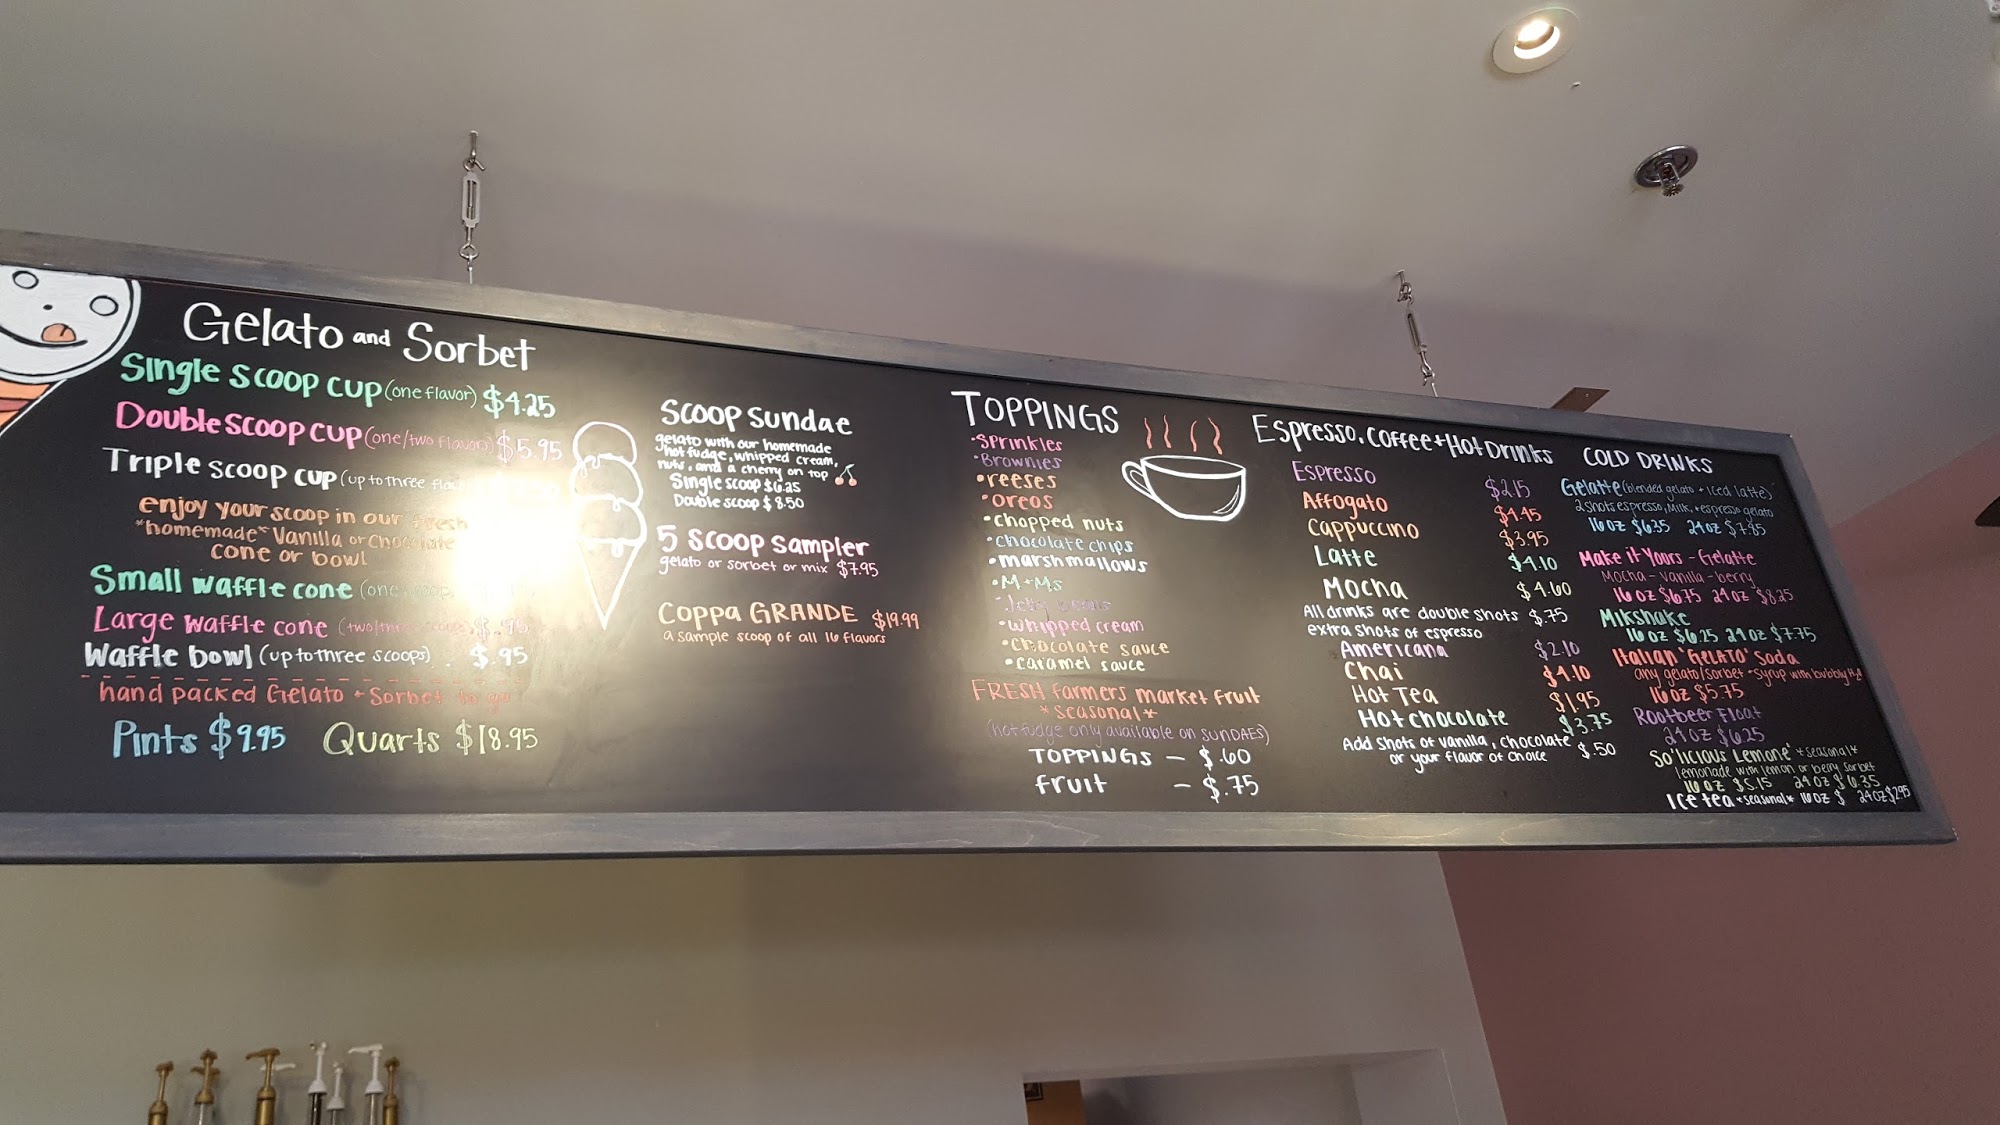 Gelato and Sorbet
Single scoop cup (one flavor) $4.25
Double scoop cup (one/two flavors) $5.95
Triple scoop cup (up to three
enjoy your scoop in our fresh
*homemade* Vanilla or Chocolate
cone or bowl
Small waffle cone (one
Large waffle cone (two/three scoops) $.95
Waffle bowl (up to three scoops) $.95
hand packed Gelato + Sorbet to go
Pints $9.95 Quarts $18.95
Scoop Sundae
gelato with our homemade
hot fudge, whipped cream,
nuts, and a cherry on top
Single scoop $6.25
Double scoop $8.50
5 Scoop Sampler
gelato or sorbet or mix $7.95
COPPA GRANDE $19.99
a sample scoop of all 16 flavors
TOPPINGS
•Sprinkles
•Brownies
•reeses
•oreos
•chopped nuts
•chocolate chips
•marshmallows
•M+Ms
•Jelly beans
•whipped cream
•chocolate sauce
•caramel sauce
FRESH farmers market fruit
*seasonal*
(hot fudge only available on SUNDAES)
TOPPINGS — $.60
fruit — $.75
Espresso, Coffee + Hot Drinks
Espresso $2.15
Affogato $4.45
Cappuccino $3.95
Latte $4.10
Mocha $4.60
All drinks are double shots $.75
extra shots of espresso
Americana $2.10
Chai $4.10
Hot Tea $1.95
Hot chocolate $3.75
Add shots of vanilla, chocolate $.50
or your flavor of choice
COLD DRINKS
Gelatte (blended gelato + iced latte)
2 shots espresso, milk, + espresso gelato
16 oz $6.35 24 oz $7.85
Make it Yours - Gelatte
Mocha - vanilla - berry
16 oz $6.75 24 oz $8.25
Milkshake
16 oz $6.25 24 oz $7.75
Italian 'GELATO' Soda
any gelato/sorbet + syrup with bubbly H2O
16 oz $5.75
Rootbeer Float
24 oz $6.25
So'licious Lemone' *seasonal*
lemonade with lemon or berry sorbet
16 oz $5.15 24 oz $6.35
Ice tea *seasonal* 16 oz $ 24 oz $2.95